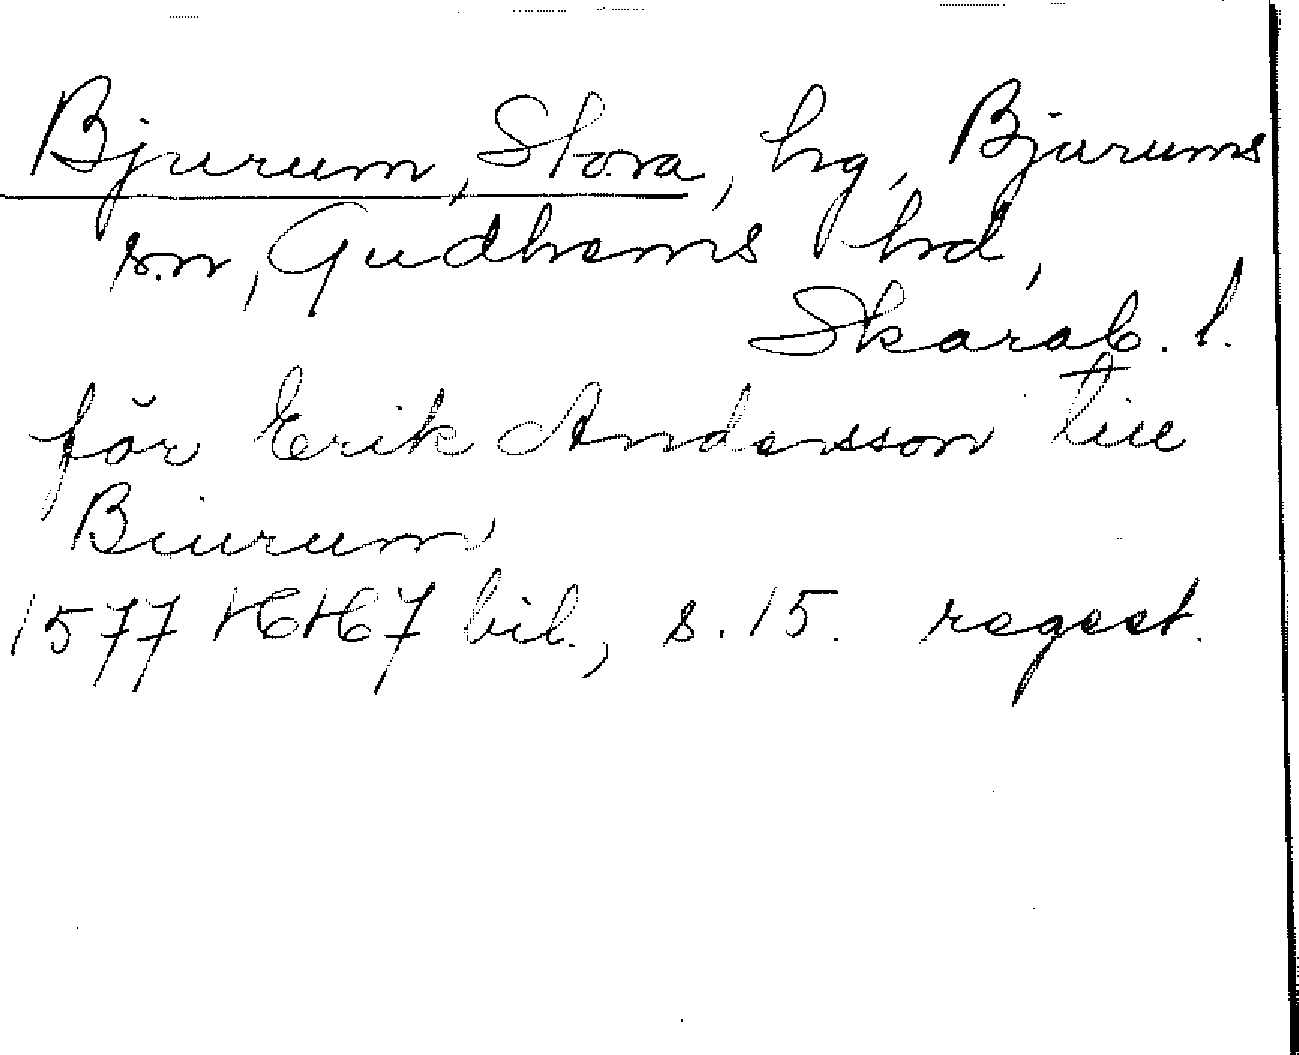 Bjurum, Stora, hg, Bjurums
sn, Gudhems hd,
Skarab. l.
för Erik Andersson till
Biurum
1577 HH7 bil., s. 15. regest.